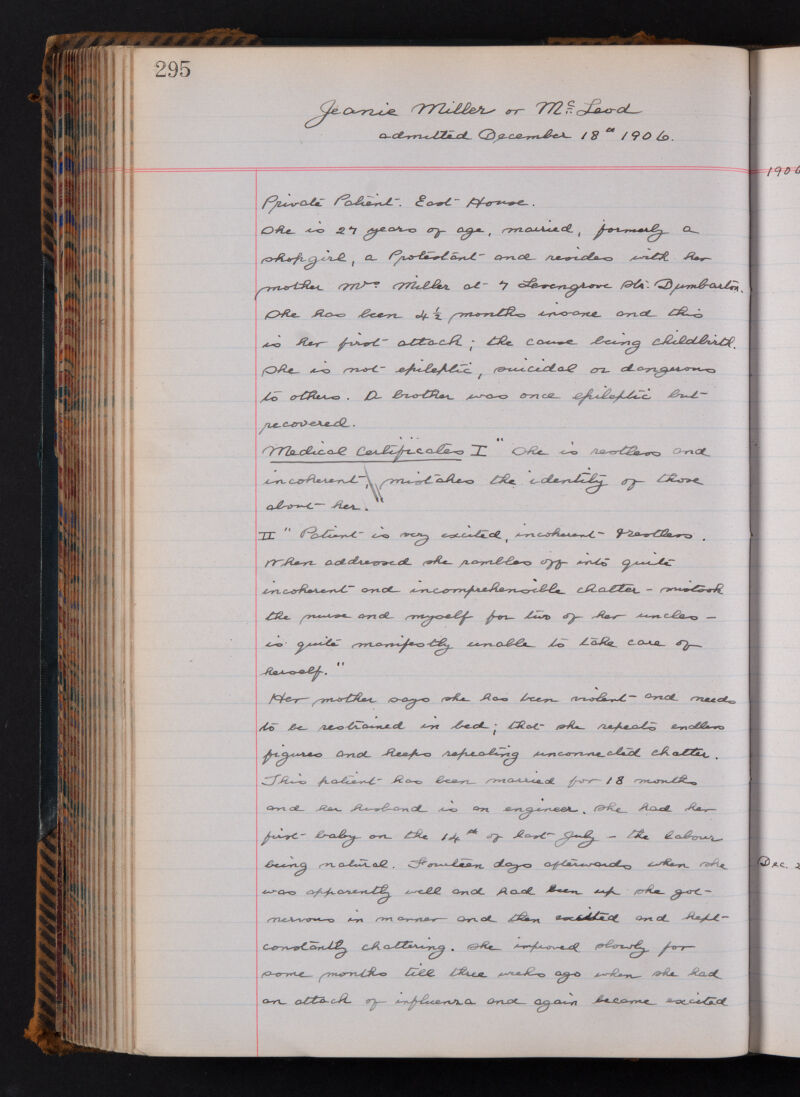 295
Jeanie Miller or Mc. Leod
admitted December 18th 1906.
1906
Private Patient. East House.
She is 27 years of age, married, formerly a
shopgirl, a Protestant and resides with her
mother Mrs Miller at 7 Levengrove Str. Dumbarton.
She has been 4½ months insane and this
is her first attack; the cause being childbirth.
She is not epileptic, suicidal or dangerous
to others. A brother was once epileptic but
recovered.
Medical Certificates I "She is restless and
incoherent, mistakes the identity of those
about her."
II "Patient is very excited, incoherent & restless.
When addressed she rambles off into quite
incoherent and incomprehensible chatter - mistook
the nurse and myself for two of her uncles -
is quite manifestly unable to take care of
herself."
Her mother says she has been violent and needs
to be restrained in bed; that she repeats endless
figures and keeps repeating unconnected chatter.
This patient has been married for 18 months
and her husband is an engineer. She had her
first baby on the 14th of last July - the labour
being natural. Fourteen days afterwards when she
was apparently well and had been up she got
nervous in manner and then excited and kept
constantly chattering. She improved slowly for
some months till three weeks ago when she had
an attack of influenza and again became excited
Dec. 2